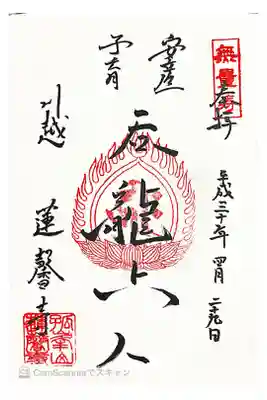 奉拝
平成三十年四月二十九日
安産
子育
呑龍上人
川越
蓮馨寺
CamScannerでスキャン